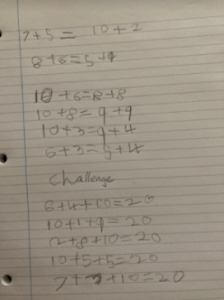 7+5=10+2
8+6=5+9
10+6=8+8
10+8=9+9
10+3=9+4
6+3=5+4
Challenge
6+4+10=20
10+1+9=20
2+8+10=20
10+5+5=20
7+3+10=20